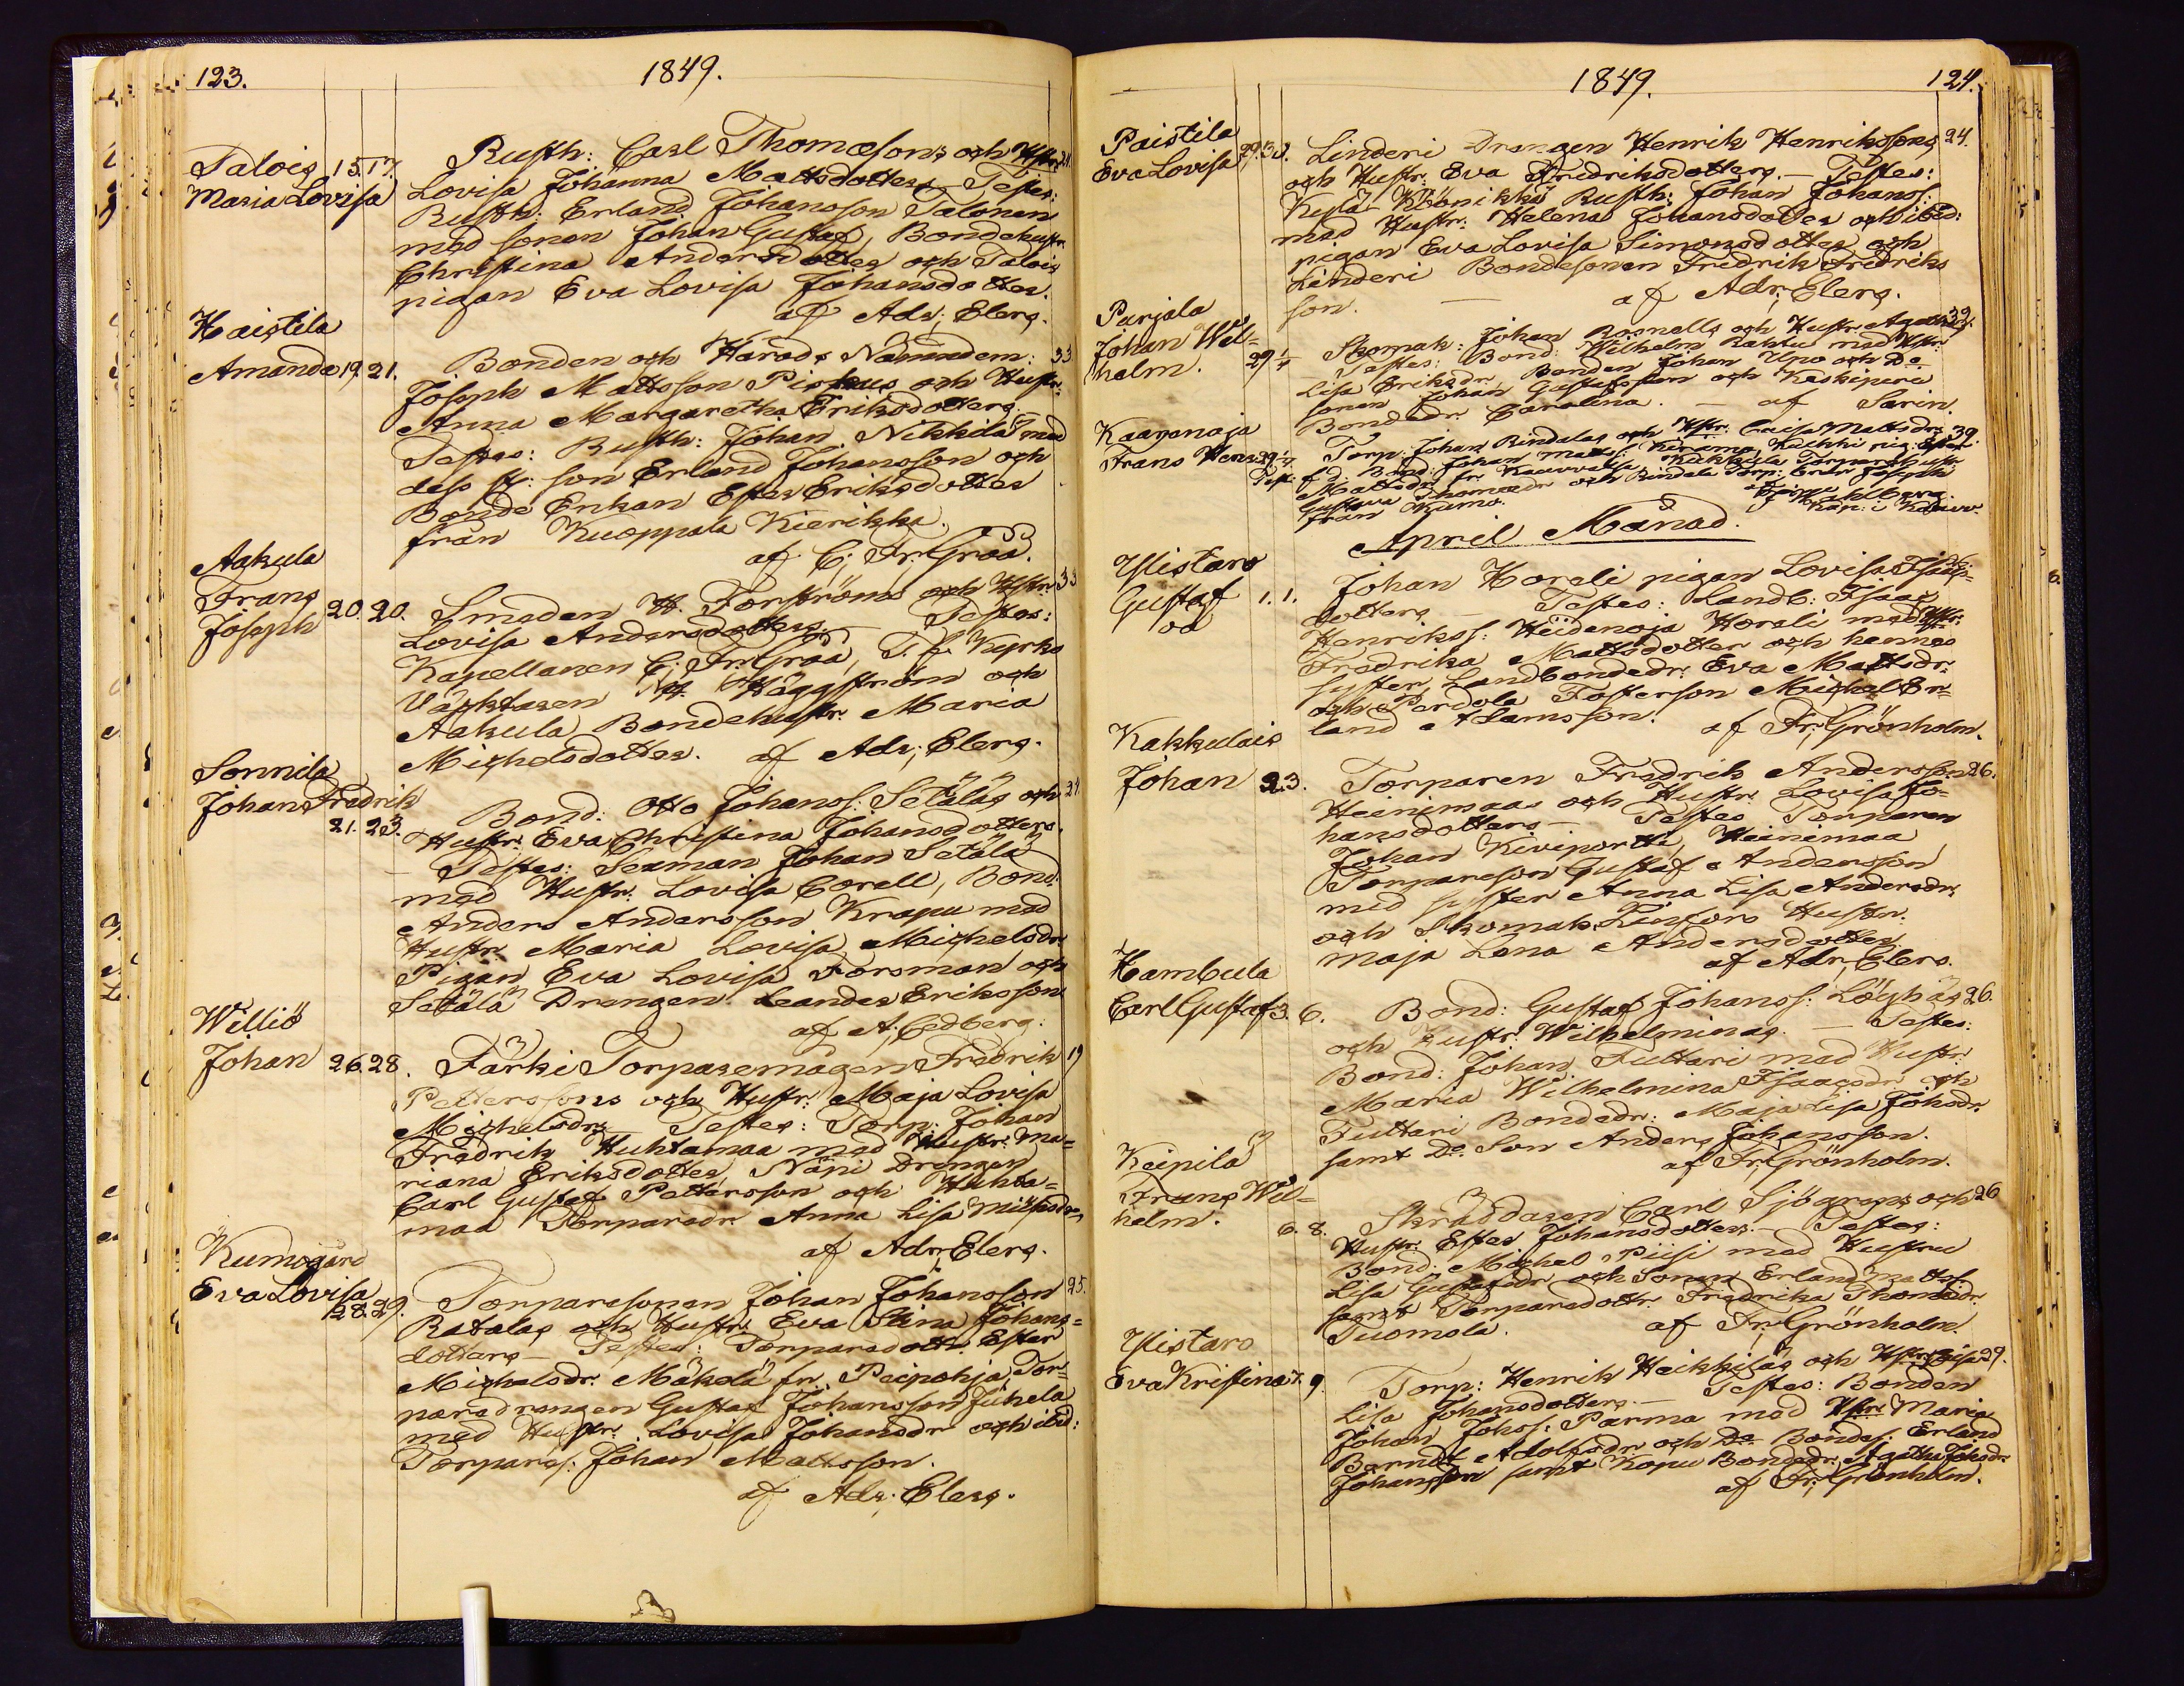 123.
1849.
Talois 15. 17.
Maria Lovisa
Rusth: Carl Thomæsons och Hstr. 24.
Lovisa Johanna Mattsdotters Testes:
Rusth: Erland Johansson Talonen
med sonen Johan Gustaf, Bondehustr.
Christina Andersdotter och Talois
pigan Eva Lovisa Johansdotter.
af Adr; Elers.
Haistila
Amanda 19. 21.
Bonden och Härads Nämndem: 33
Joseph Mattsson Piskus och Hustr:
Anna Margaretha Eriksdotters.
Testes: Rusth: Johan Nikkilä med
dess son Erland Johansson och
Bonde Enkan Ester Eriksdotter
från Kuoppala Kierikka.
af C; Fr. Gråå.
Aakula
Frans
Joseph 20. 20.
Smeden H. Forströms och Hstr. 33
Lovisa Andersdotters. Testes:
Kapellanen C; Fr. Gråå, T. f. Kyrko
Väcktaren Häggström och
Aakula Bondehustr. Maria
Michelsdotter. af Adr; Elers.
Sonnila
Johan Fredrik
21. 23.
Bond: Otto Johanss: Setäläs och 34.
Hustr. Eva Christina Johansdotters.
Testes: Sexman Johan Setälä
med Hustr. Lovisa Corell, Bond:
Anders Andersson Krapu med
Hustr. Maria Lovisa Michelsdr.
Pigan Eva Lovisa Forsman och
Setälä Drengen Leander Eriksson
af A; Cedberg.
Williö
Johan 26. 28.
Färki Torparemågen Fredrik 19
Petterssons och Hustr: Maja Lovisa
Michelsdrs Testes: Torp: Johan
Fredrik Huhtamaa med Hustr: Ma=
riana Eriksdotter, Näpi Drengen
Carl Gustaf Pettersson och Huhta=
maa Torparedr. Anna Lisa
af Adr; Elers.
Kumogård
Eva Lovisa
28. 29.
Torparesonen Johan Johansson 25.
Ratalas och Hustr. Eva Stina Johans=
dotters Testes: Torparedottr. Ester
Michelsdr. Mäkelä fr. Peipohja, Tor=
paredrengen Gustaf Johansson Juhela
med Hustr. Lovisa Johansdr och ibid:
Torpares: Johan Mattsson.
af Adr; Elers.
1849. 124.
Paistila
Eva Lovisa 29. 30.
Linderi Drengen Henrik Henrikssons 24.
och Hustr: Eva Fredriksdotters. Testes:
Kylä Köönikkä Rusth: Johan Johanss:
med Hustr: Helena Johansdotter och ibid:
pigan Eva Lovisa Simonsdotter och
Linderi Bondesonen Fredrik Fredriks
son. af Adr; Elers.
Purjala
Johan Wil=
helm. 29 1/4
Skomak: Johan Rosnells och Hustr. Agatha 39.
Testes: Bond: Wilhelm Rahtu med Hstr:
Lisa Eriksdr, Bonden Johan Upo och Do
sonen Johan Gustafsson och Keskipere
Bondedr. Carolina. af Sarin.
Kaaronoja
Frans Herm 29 1/4
Torp: Johan Rindalas och Hstr: Caisa Mattsdrs 39.
Test: f.d. Bond: Johan Matts: Kirama, Kukkila pig: Ester
Mattsdr fr Kauvvatsa, Kukkula Torparehustr:
Gustava Thomædr och Rindala Torp: Enka Joseph
från Kumo. af Wahlberg.
Kap: i Kauvv.
April Månad.
Ylistaro
Gustaf
oä 1. 1.
Johan Horeli pigan Lovisa Isacs=
dotters Testes: Landb: Isaac
Henrikss: Heidenoja Horeli med Hstr:
Fredrika Mattsdotter och hennes
syster Landbondedr. Eva Mattsdr.
och Perdola Fosterson Michel Er=
land Adamsson. af Fr; Grönholm.
Kakkulais
Johan 2. 3.
Torparen Fredrik Andersson 26.
Heinimaas och Hustr. Lovisa Jo=
hansdotters Testes Torparen
Johan Kiviportti, Heinimaa
Torpareson Gustaf Andersson
med syster Anna Lisa Andersdr.
och Skomak. Finfors Hustr.
Maja Lena Andersdotter
af Adr; Elers.
Hambula
Carl Gustaf 3. 6.
Bond: Gustaf Johanss: Löyhäs 26.
och Hustr: Wilhelminas. Testes:
Bond: Johan Juttari med Hustr:
Maria Wilhelmina Isaacsdr. och
Juttari Bondedr: Maja Lisa Johsdr.
samt Do Son Anders Johansson.
af Fr; Grönholm.
Keipilä
Frans Wil=
helm. 6. 8.
Skräddaren Carl Sjögrens och 26
Hustr: Ester Johansdotters. Testes:
Bond: Michel Piisi med Hustru
Lisa Gustafsdr och Sonen Erland Mattss:
samt Torparedottr. Fredrika Thomædr.
Tuomola. af Fr; Grönholm.
Ylistaro
Eva Kristina 7. 9.
Torp: Henrik Heikkiläs och Hstr: Caisa 29.
Lisa Johansdotters. Testes: Bonden
Johan Johss: Parma med Hstr: Maria
Berndt Adolfsdr. och Do Bondes. Erland
Johansson samt Kopu Bondedr. Agatha Johsdr.
af Fr; Grönholm.